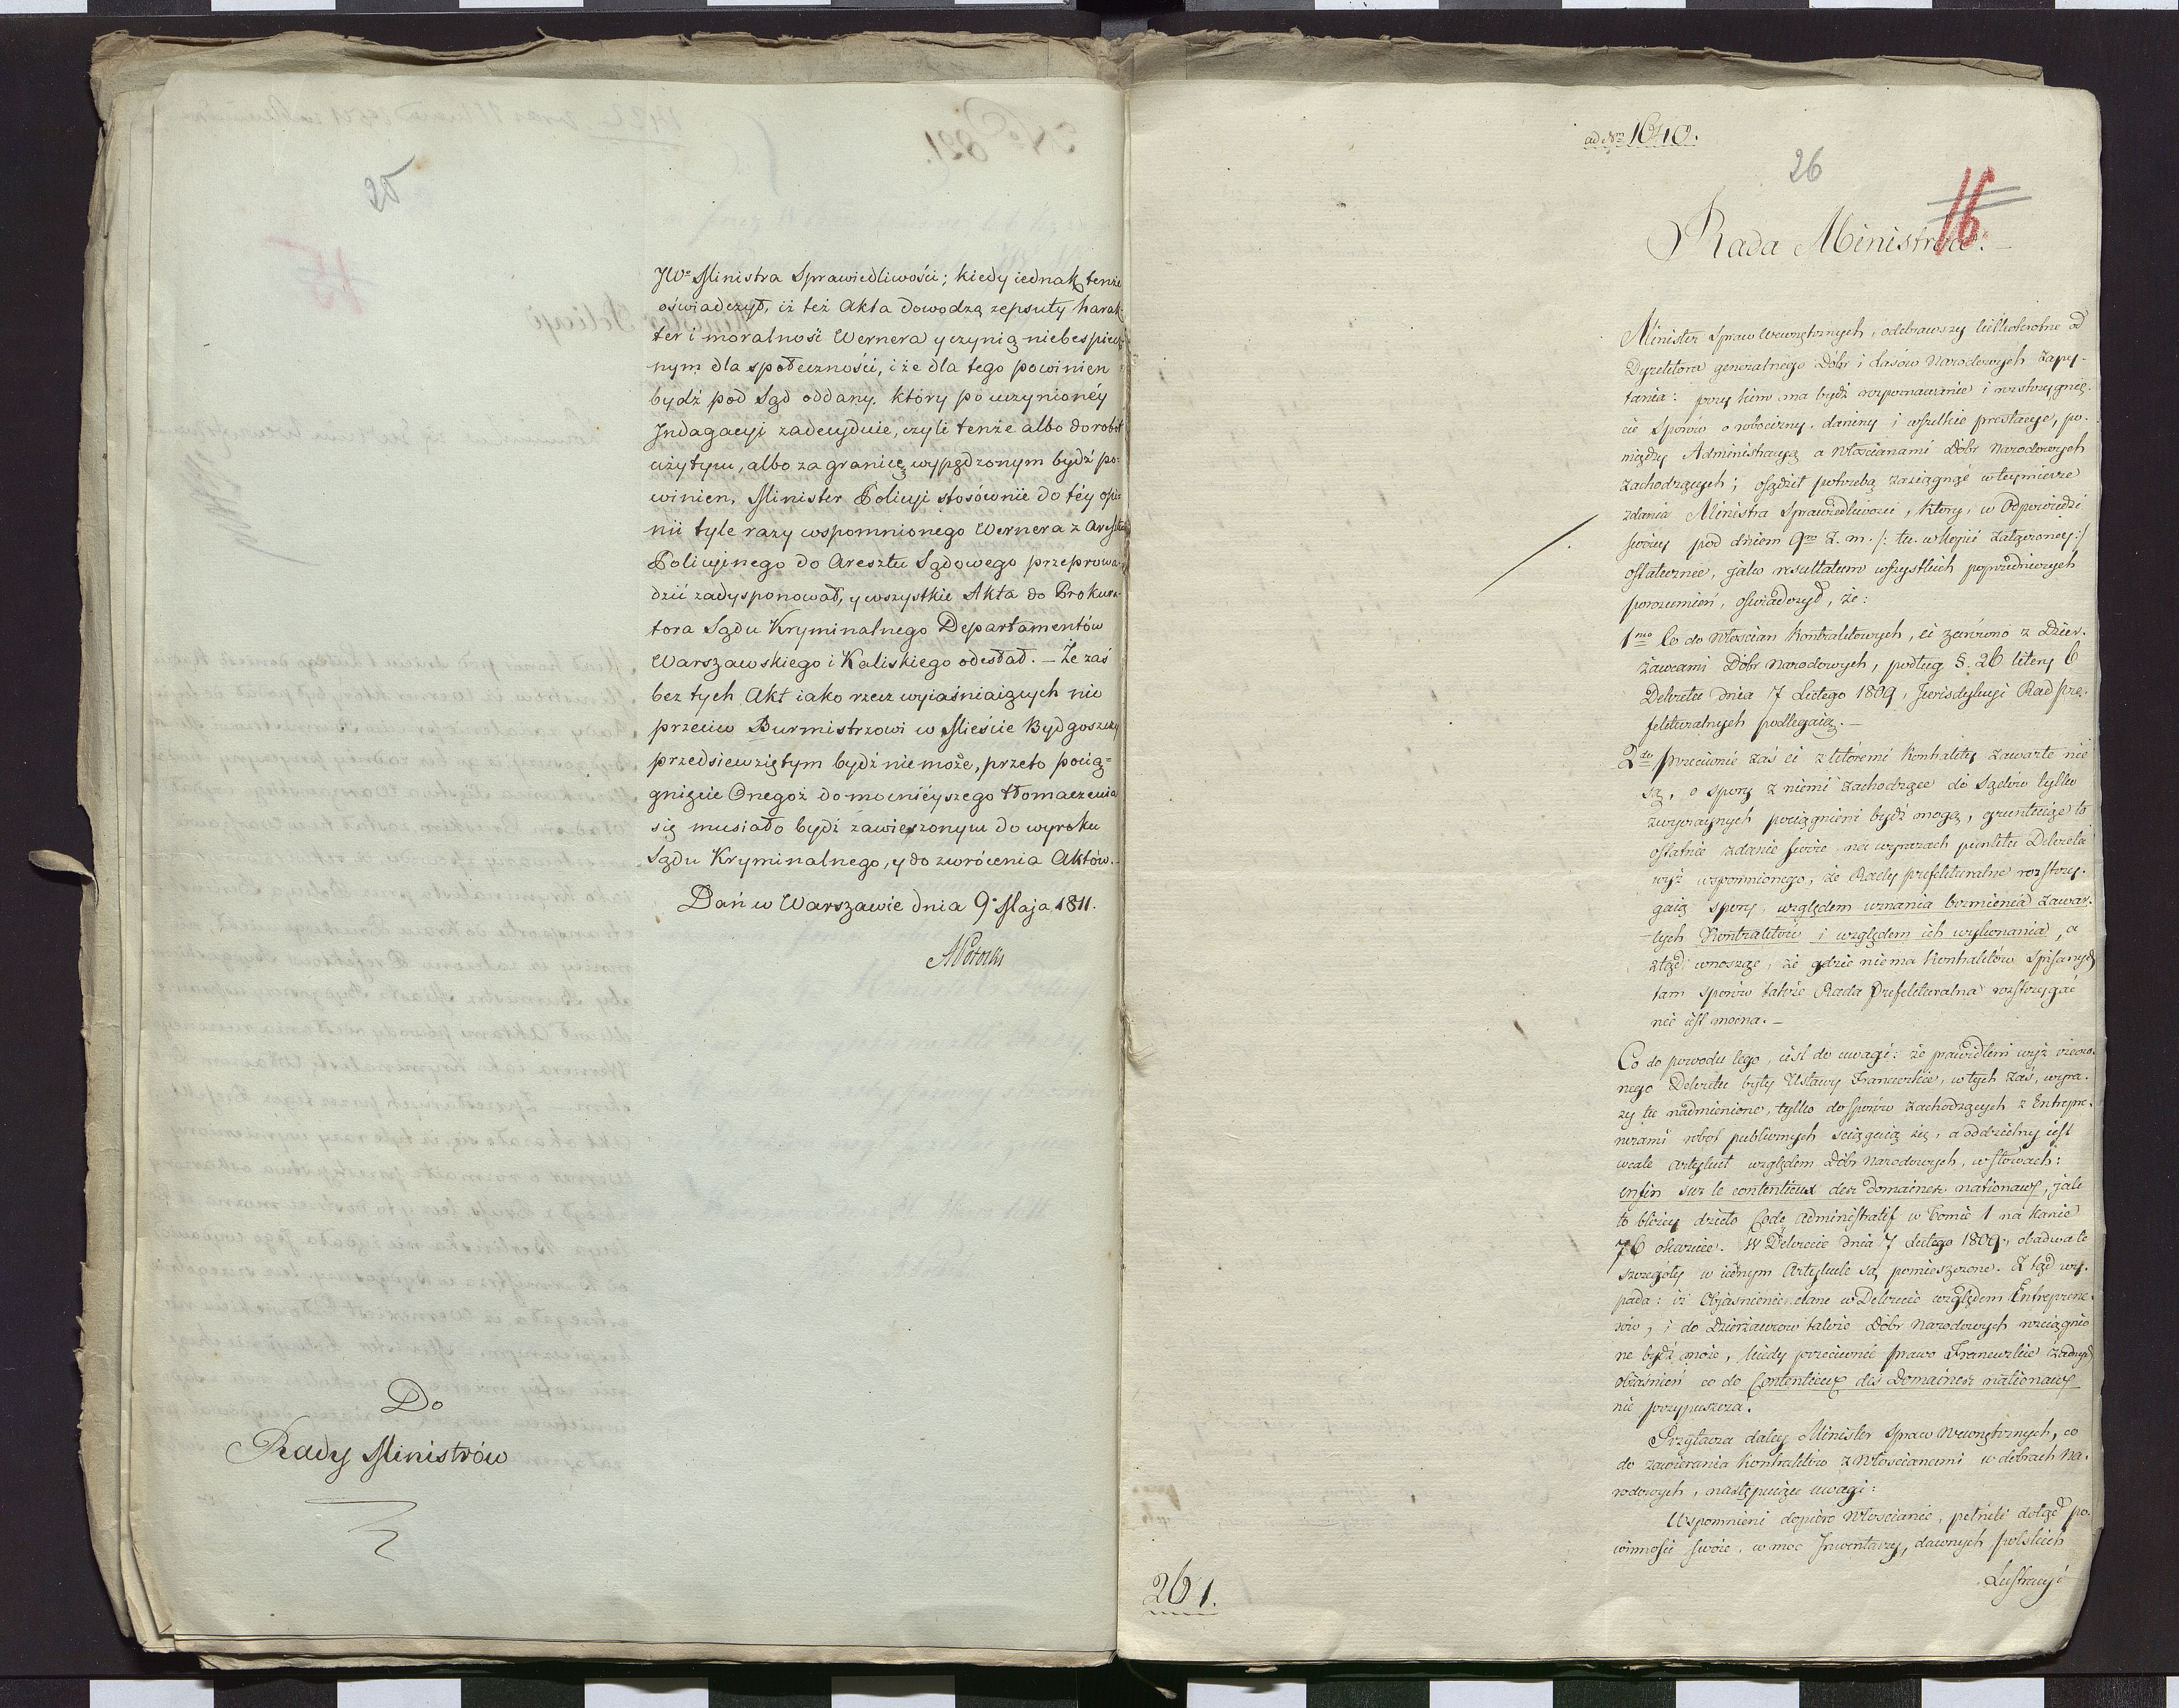 25
JWo Ministra Sprawiedliwości; kiedy iednak tenże
oświadczył, iż też Akta dowodzą zepsuty harak-
ter i moralność Wernera y czynią niebespiecz-
nym dla społeczności, i że dla tego powinien
bydź pod Sąd oddany. który po uczynionéy
Indagacyi zadecyduie, czyli tenże albo do robot
użytym, albo za granicę wypędzonym bydź po-
winien. Minister Policyi stosównie do téy opi-
nii tyle razy wspomnionego Wernera z Aresztu
Policyinego do Aresztu Sądowego przeprowa-
dzić zadysponował, y wszystkie Akta do Prokura-
tora Sądu Kryminalnego Departamentów
Warszawskiego i Kaliskiego odesłał. – Że zaś
bez tych Akt iako rzecz wyiaśniaiących nic
przeciw Burmistrzowi w Mieście Bydgoszczy
przedsiewziętym bydź nie może, przeto pocią-
gnięcie Onegoż do mocniéyszego tłomaczenia
się musiało bydź zawieszonym do wyroku
Sądu Kryminalnego, y do zwrócenia Aktów. –
Dań w Warszawie dnia 9. Maja 1811.
APotocki
Do
Rady Ministrów
ad Nrm 1640.
26
16
Rada Ministrów. –
Minister Spraw Wewnętrznych, odebrawszy kilkokrotne od
Dyrektora generalnego Dóbr i Lasów Narodowych zapy-
tania: przy kim ma bydź rozpoznawanie i rozstrzygnię-
cie Sporów o robocizny, daniny i wszelkie prestacye, po-
między Administracyą a Włościanami Dóbr Narodowych
zachodzących; osądził potrzebą zasiągnąć w téymierze
zdania Ministra Sprawiedliwości, który, w Odpowiedzi
swoiey pod dniem 9m z. m. /: tu w kopii załączoney :/
ostatecznie, jako resultatum wszystkich poprzedniczych
porozumień, oświadczył, że:
1mo Co do Włościan kontraktowych, ci zarówno z Dzier-
żawcami Dóbr Narodowych, podług §. 26 litery b
Dekretu dnia 7 Lutego 1809, Jurisdykcyi Rad pre-
fekturalnych podlegaią. –
2do przeciwnie zaś ci z któremi kontrakty zawarte nie
są, o spory z niemi zachodzące do Sądów tylko
zwyczaynych pociągnieni bydź mogą, gruntuiąc to
ostatnie zdanie swoie na wyrazach punktu Dekretu
wyż wspomnionego, że Rady prefekturalne rozstrzy-
gaią spory, względem uznania brzmienia zawar-
tych Kontraktów i względem ich wykonania, a
ztąd wnosząc, że gdzie niema kontraktów spisanych
tam sporów takoż Rada Prefekturalna rozstrzygać
nie iest mocna. –
Co do powodu tego, iest do uwagi: że prawidłem wyż rzeczo-
nego Dekretu były Ustawy Francuzkie, w tych zaś, wyra-
zy tu nadmienione, tylko do sporów zachodzących z Entrepre-
nerami robot publicznych sciągaią się, a oddzielny iest
wcale artykuł względem Dóbr Narodowych, w słowach:
enfin sur le contentieux des domaines nationaux, jak
to bliżey dzieło Code Administratif w Tomie 1 na karcie
76 okazuie. W Dekrecie dnia 7 Lutego 1809, obadwa te
szczegóły w iednym Artykule są pomieszczone. Ztąd wy-
pada: iż Objaśnienie dane w Dekrecie względem Entreprene-
rów, i do Dzierżawców takoż Dóbr Narodowych rozciągnio-
ne bydź może, kiedy przeciwnie prawo Francuzkie żadnych
obiaśnień co do Contentieux des Domaines nationaux
nie przypuszcza.
Przytacza daley Minister Spraw Wewnętrznych, co
do zawierania kontraktów z Włościanami w dobrach Na-
rodowych, następuiące uwagi:
Wspomnieni dopiéro Włościanie, pełnili dotąd po-
winności swoie, w moc Inwentarzy, dawnych polskich
Lustracyi
261.